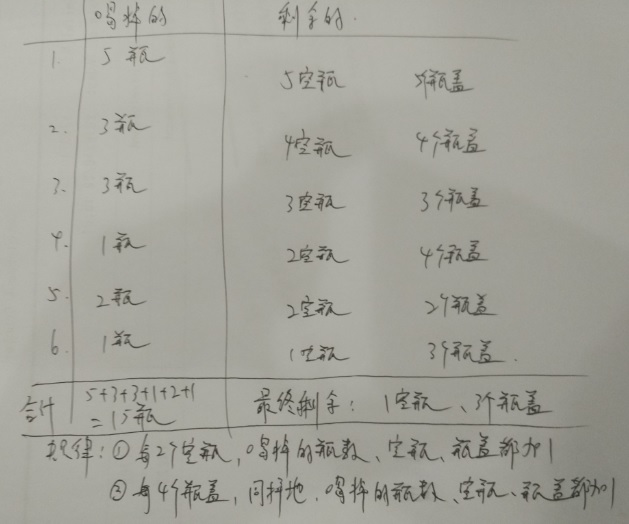 喝掉的 剩余的.
1. 5瓶
5空瓶 5个瓶盖
2. 3瓶
4空瓶 4个瓶盖
3. 3瓶
3空瓶 3个瓶盖
4. 1瓶
2空瓶 4个瓶盖
5. 2瓶
2空瓶 2个瓶盖
6. 1瓶
1空瓶 3个瓶盖.
合计 5+3+3+1+2+1 最终剩余: 1空瓶、3个瓶盖
=15瓶
规律: ①每2个空瓶, 喝掉的瓶数、空瓶、瓶盖都加1
②每4个瓶盖, 同样地, 喝掉的瓶数、空瓶、瓶盖都加1